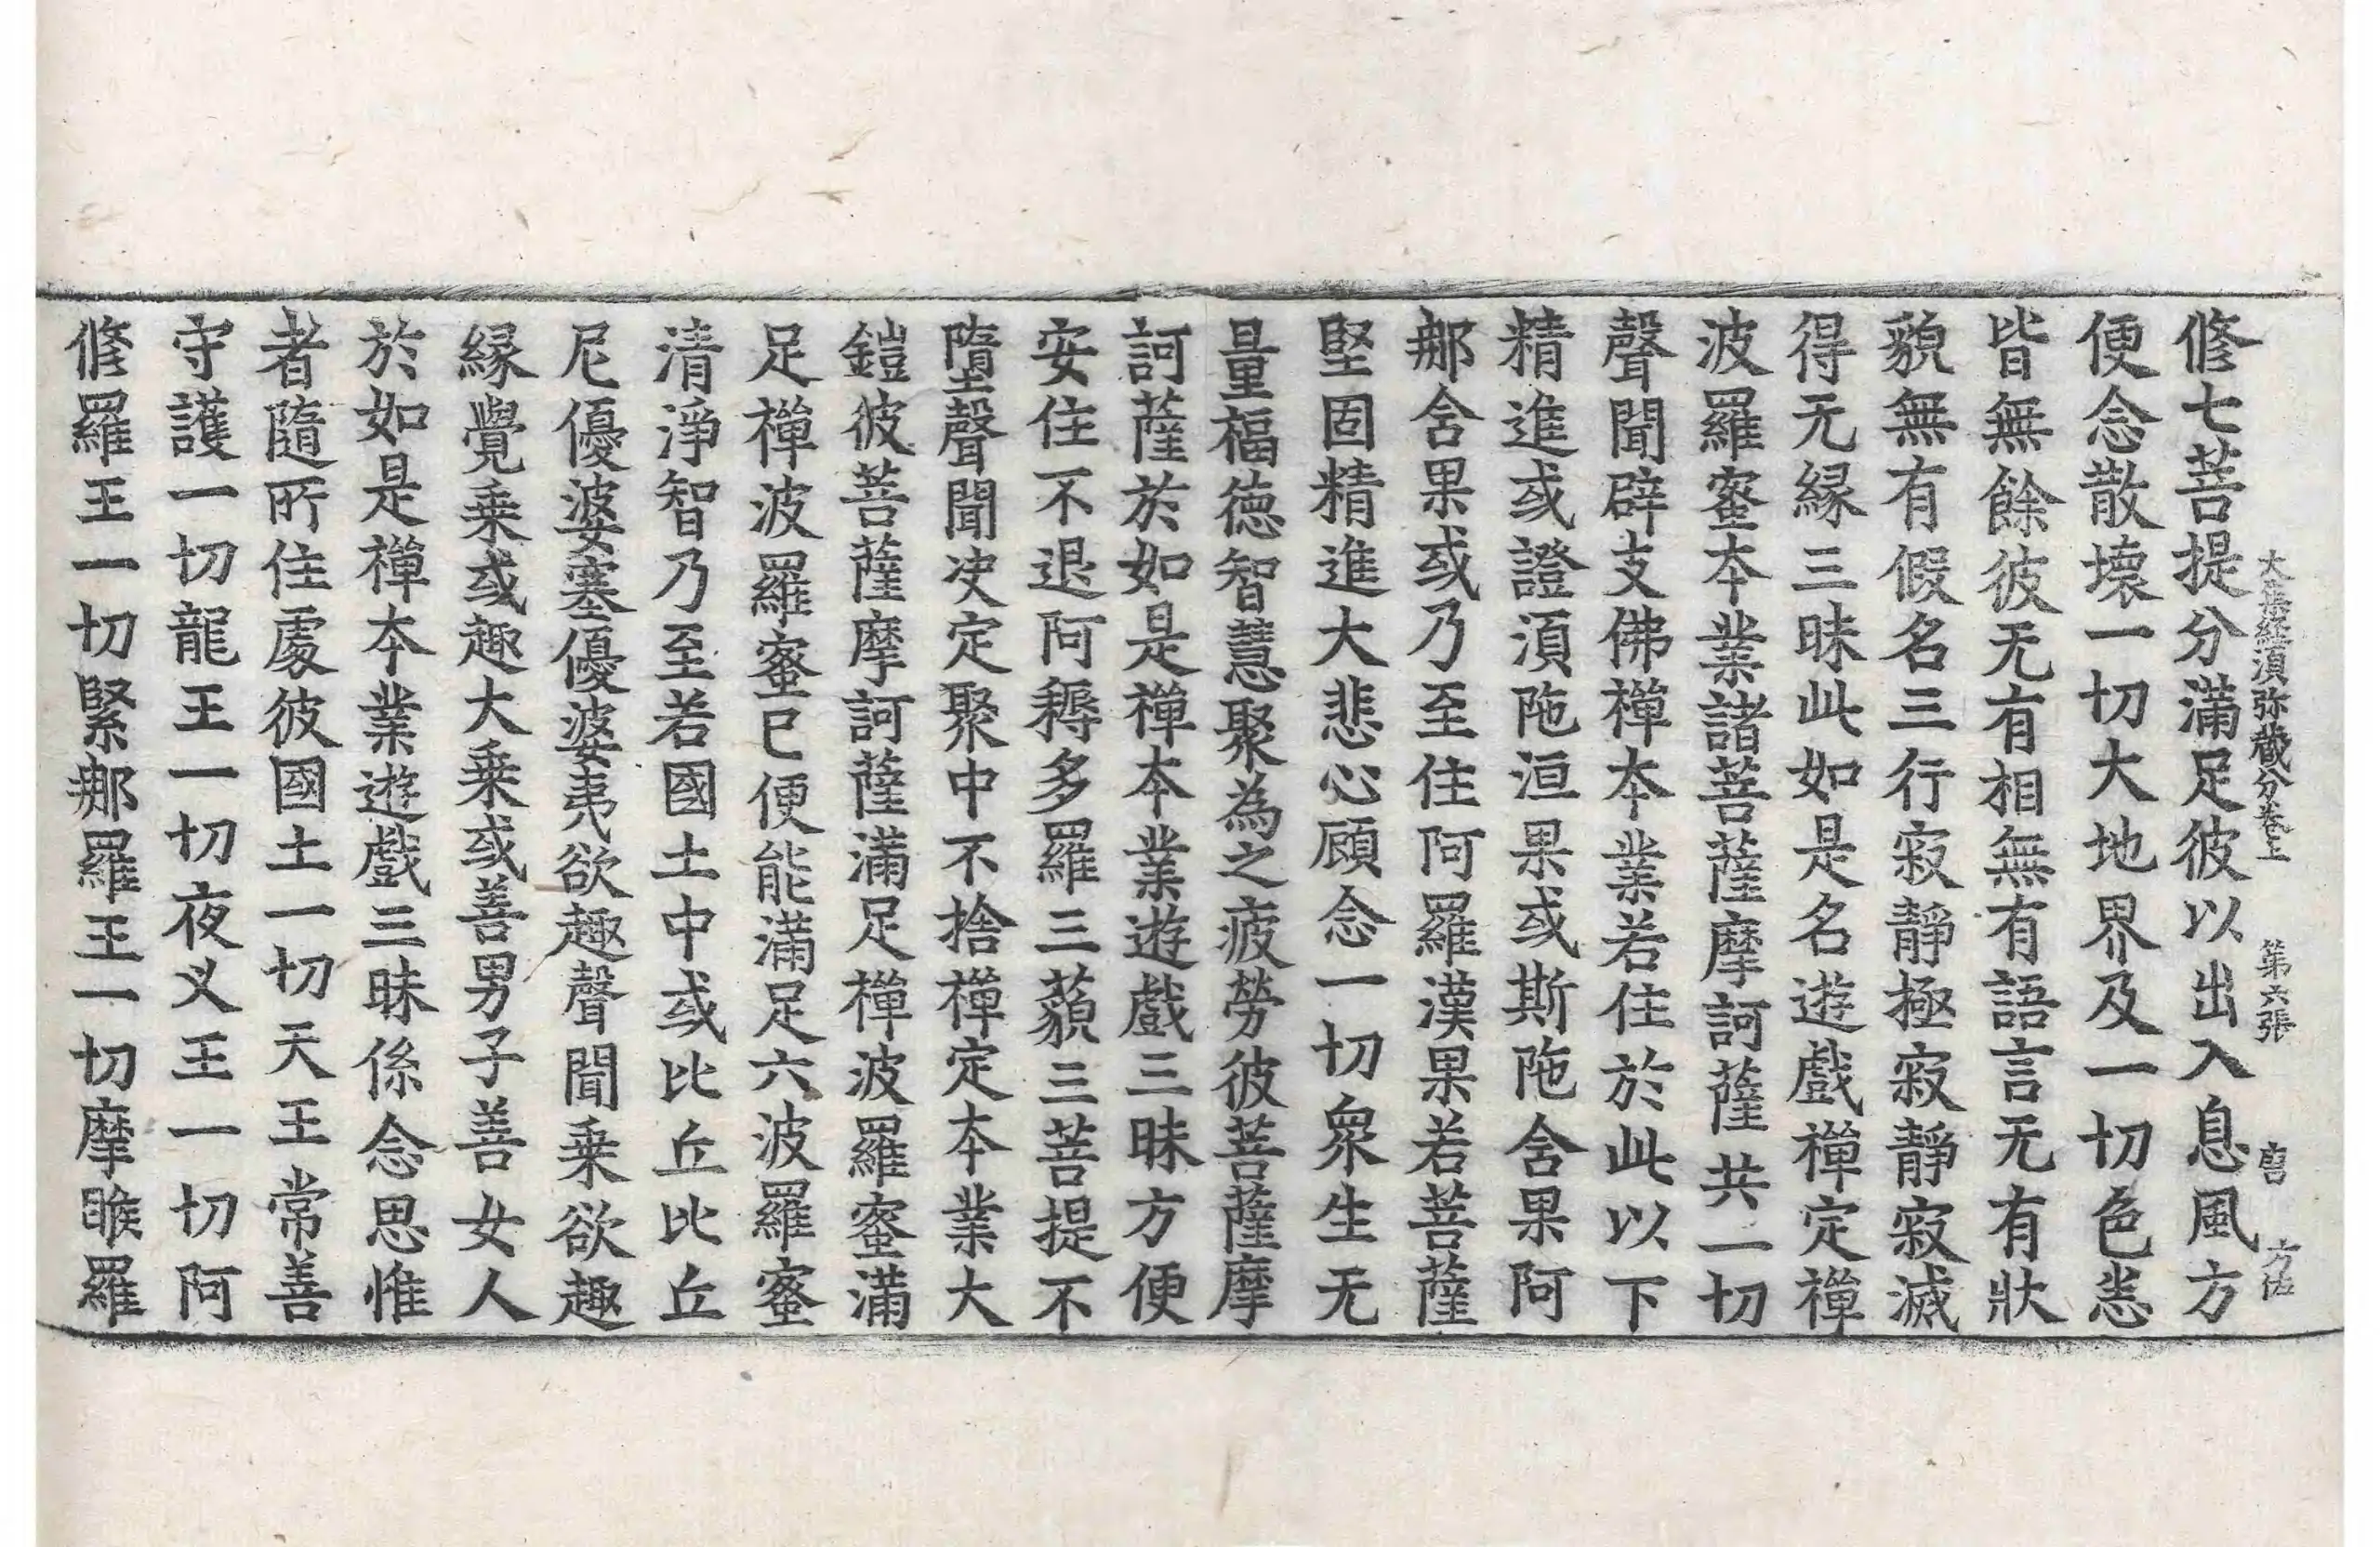 大集経湏弥藏分卷上 第六張 唐 方佐
修七菩提分滿足彼以出入息風方
便念散壞一切大地界及一切色悉
皆無餘彼无有相無有語言无有狀
貌無有假名三行寂靜極寂靜寂滅
得无縁三昧此如是名遊戲禪定禪
波羅蜜本業諸菩薩摩訶薩共一切
聲聞辟支佛禪本業若住於此以下
精進或證湏陁洹果或斯陁舍果阿
那舍果或乃至住阿羅漢果若菩薩
堅固精進大悲心顧念一切衆生无
量福德智慧聚為之疲勞彼菩薩摩
訶薩於如是禪本業遊戲三昧方便
安住不退阿耨多羅三藐三菩提不
墮聲聞决定聚中不捨禪定本業大
鎧彼菩薩摩訶薩滿足禪波羅蜜滿
足禪波羅蜜已便能滿足六波羅蜜
清淨智乃至若國土中或比丘比丘
尼優婆塞優婆夷欲趣聲聞乗欲趣
縁覺乗或趣大乗或善男子善女人
於如是禪本業遊戲三昧係念思惟
者隨所住處彼國土一切天王常善
守護一切龍王一切夜叉王一切阿
修羅王一切緊那羅王一切摩睺羅